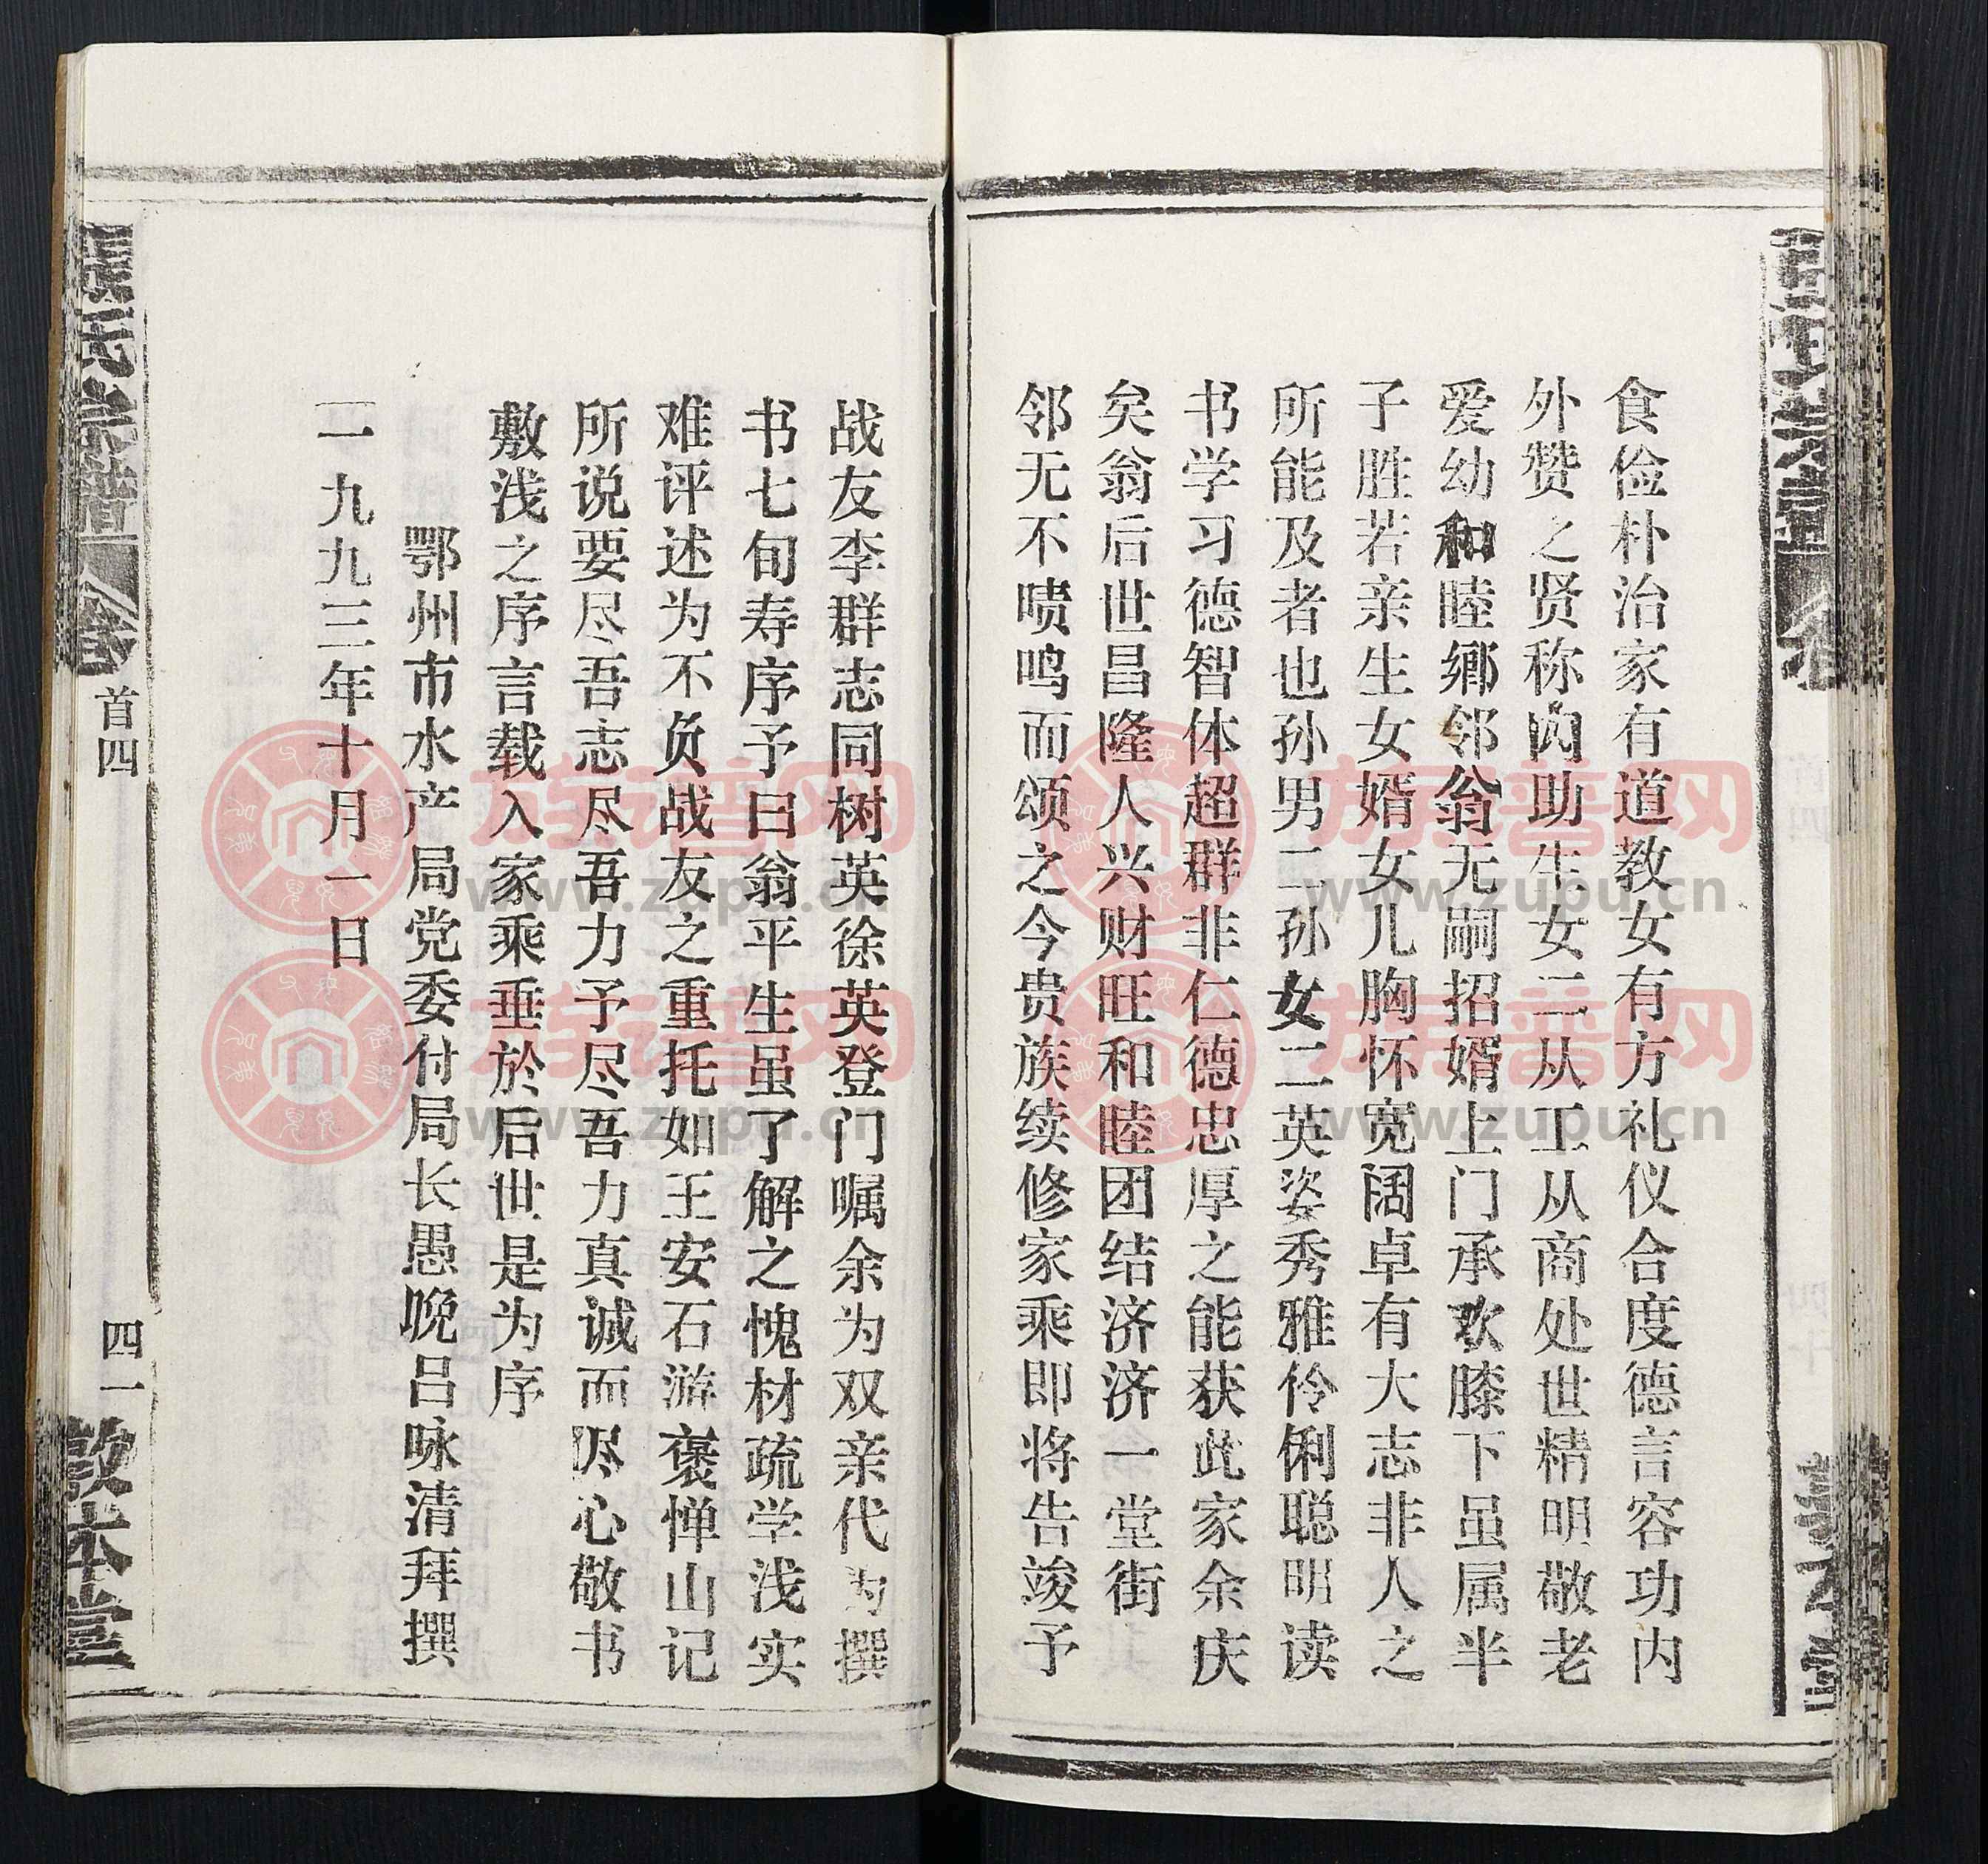 食俭朴治家有道教女有方礼仪合度德言容功内
外赞之贤称内助生女二从工从商处世精明敬老
爱幼和睦鄉邻翁无嗣招婿上门承欢膝下虽属半
子胜若亲生女婿女儿胸怀宽阔卓有大志非人之
所能及者也孙男二孙女二英姿秀雅伶俐聪明读
书学习德智体超群非仁德忠厚之能获此家余庆
矣翁后世昌隆人兴财旺和睦团结济济一堂街
邻无不啧鸣而颂之今贵族续修家乘即将告竣予
战友李群志同树英徐英登门嘱余为双亲代为撰
书七旬寿序予曰翁平生虽了解之愧材疏学浅实
难评述为不负战友之重托如王安石游褒惮山记
所说要尽吾志尽吾力予尽吾力真诚而尽心敬书
敷浅之序言载入家乘垂於后世是为序
鄂州市水产局党委付局长愚晚吕咏清拜撰
一九九三年十月一日
氏宗谱
首四
四一
敦本堂
族谱网
www.zupu.cn
族谱网
www.zupu.cn
族谱网
www.zupu.cn
族谱网
www.zupu.cn